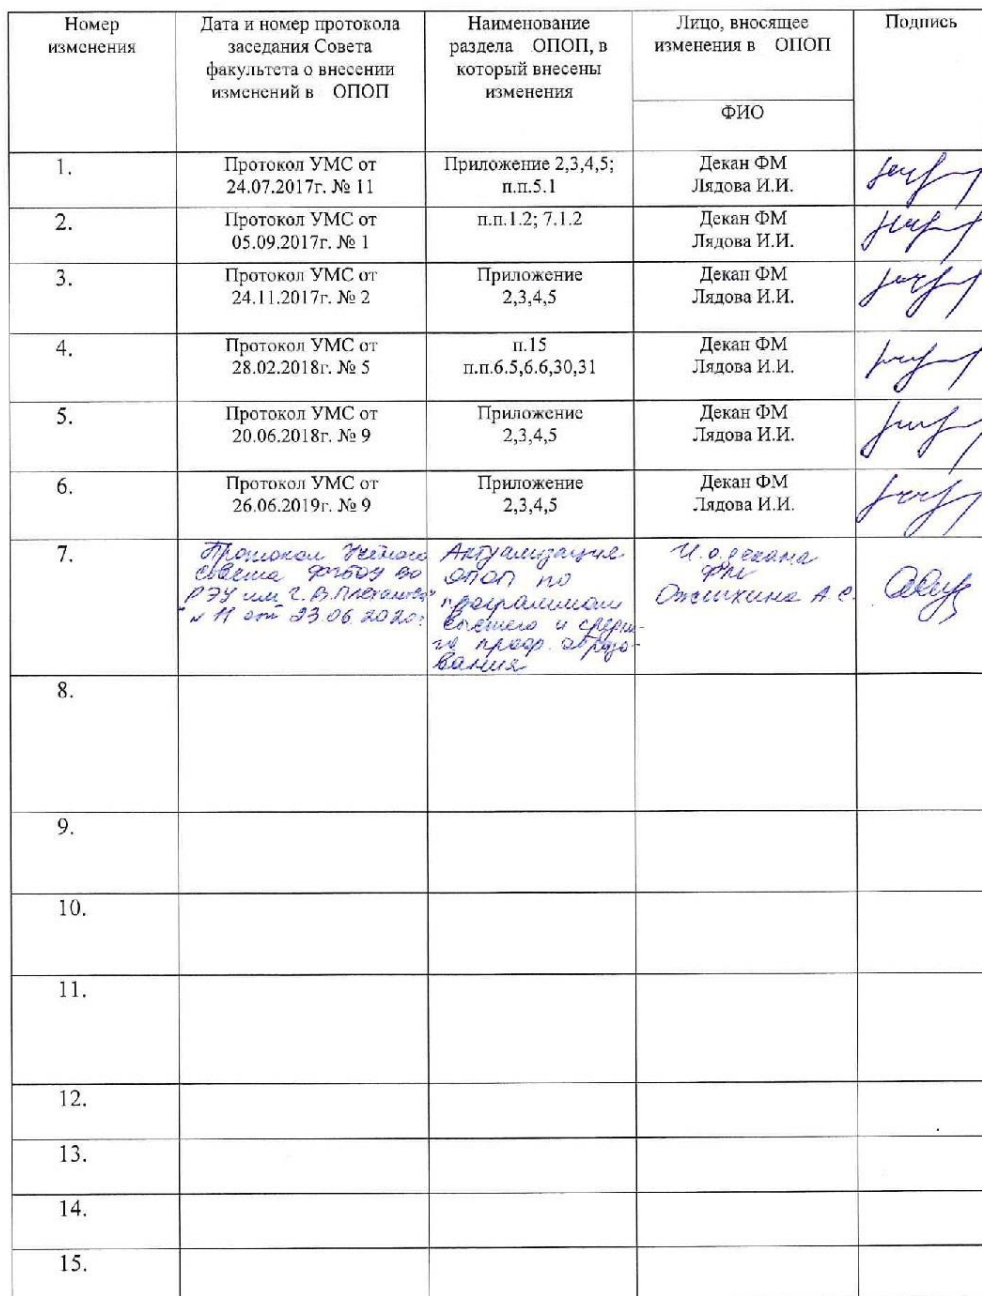 Номер
изменения
Дата и номер протокола
заседания Совета
факультета о внесении
изменений в ОПОП
Наименование
раздела ОПОП, в
который внесены
изменения
Лицо, вносящее
изменения в ОПОП
ФИО
Подпись
1.
Протокол УМС от
24.07.2017г. № 11
Приложение 2,3,4,5;
п.п.5.1
Декан ФМ
Лядова И.И.
2.
Протокол УМС от
05.09.2017г. № 1
п.п.1.2; 7.1.2
Декан ФМ
Лядова И.И.
3.
Протокол УМС от
24.11.2017г. № 2
Приложение
2,3,4,5
Декан ФМ
Лядова И.И.
4.
Протокол УМС от
28.02.2018г. № 5
п.15
п.п.6.5,6.6,30,31
Декан ФМ
Лядова И.И.
5.
Протокол УМС от
20.06.2018г. № 9
Приложение
2,3,4,5
Декан ФМ
Лядова И.И.
6.
Протокол УМС от
26.06.2019г. № 9
Приложение
2,3,4,5
Декан ФМ
Лядова И.И.
7.
Протокол Ученого
совета ФГБОУ ВО
РЭУ им. Г.В.Плеханова"
№ 11 от 23.06.2020г.
Актуализация
ОПОП по
программам
высшего и средне-
го проф. образо-
вания
И.о.декана
ФМ
А.С.
8.
9.
10.
11.
12.
13.
14.
15.